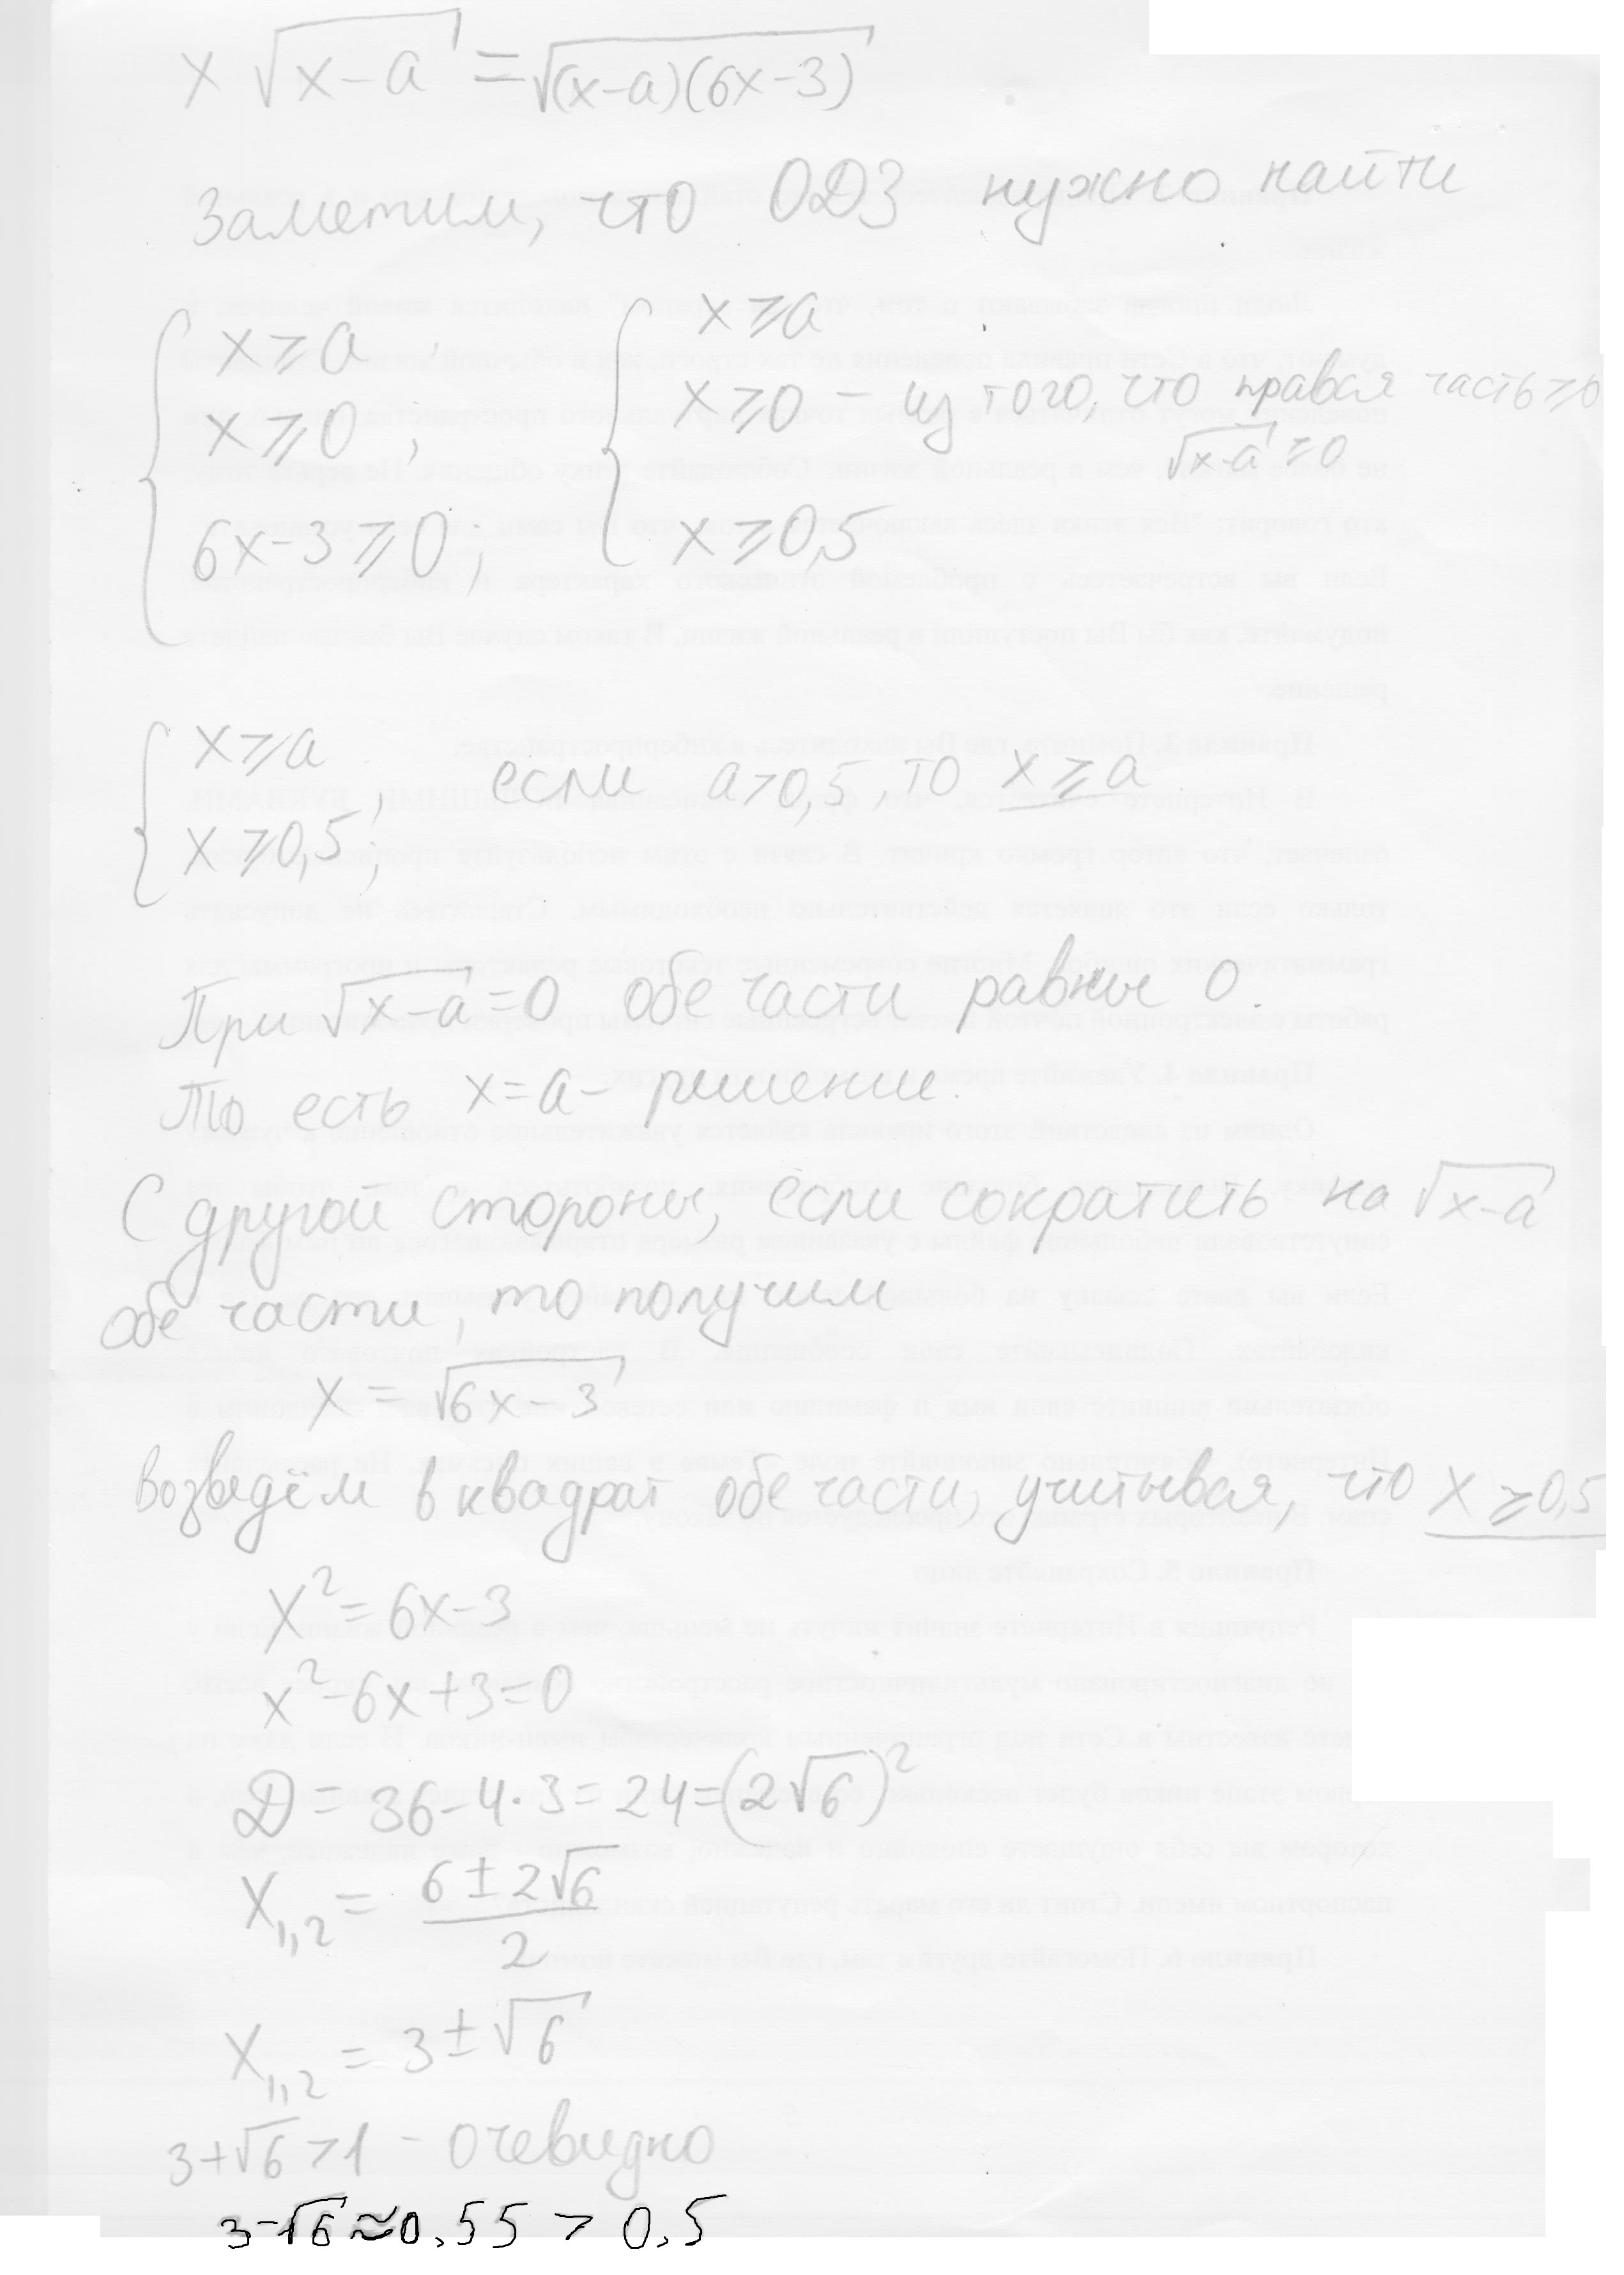 x √(x-a) = √((x-a)(6x-3))
Заметим, что ОДЗ нужно найти
{ x ⩾ a , { x ⩾ a
x ⩾ 0 ; x ⩾ 0 – из того, что правая часть ⩾ 0
√(x-a) ⩾ 0
6x-3 ⩾ 0 ; x ⩾ 0,5
{ x ⩾ a если a > 0,5 то x ⩾ a
x ⩾ 0,5 ;
При √(x-a) = 0 обе части равны 0.
То есть x = a - решение.
С другой стороны, если сократить на √(x-a)
обе части, то получим
x = √(6x-3)
Возведём в квадрат обе части, учитывая, что x ⩾ 0,5
x² = 6x-3
x² - 6x + 3 = 0
D = 36 - 4·3 = 24 = (2√6)²
x₁,₂ = (6 ± 2√6)/2
x₁,₂ = 3 ± √6
3+√6 > 1 - очевидно
3-√6 ≈ 0,55 > 0,5